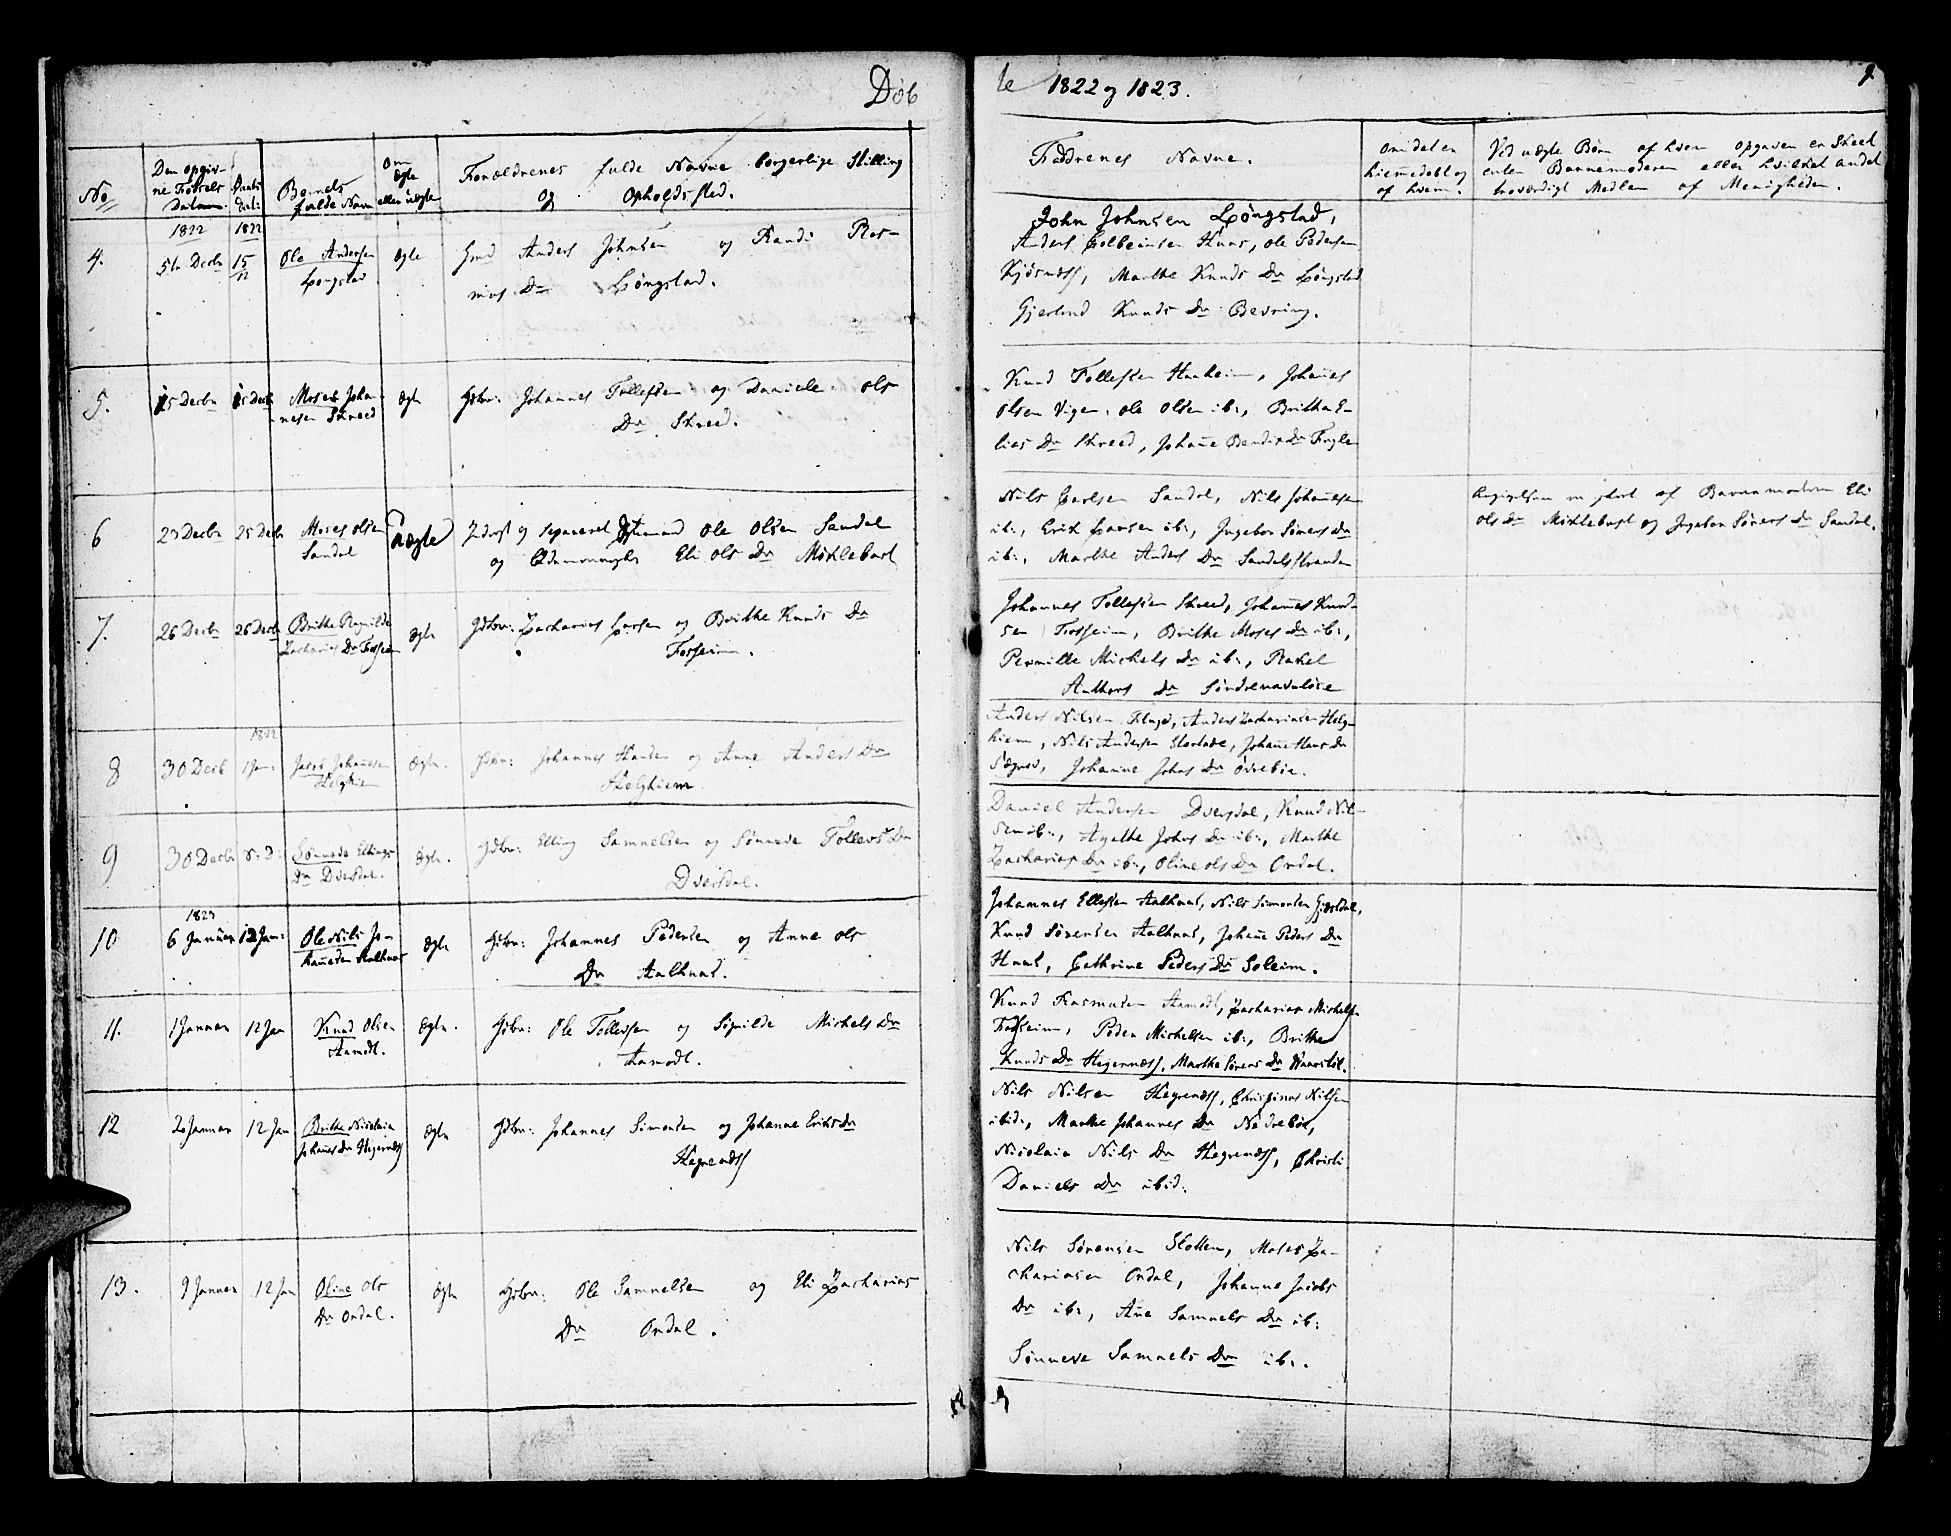 Døb
te 1822 og 1823.
9
No
Den opgiv-
ne Fødsels
Datum.
Daabs
Dat:
Barnets
fulde Navn
Om
ægte
eller uægte
Forældrenes fulde Navne borgerlige Stilling
og Opholdssted.
Faddrenes Navne.
Om idet er
hiemedøbt og
af hvem.
Ved uægte Børn af hvem opgaven er Skeet
enten Barnemoderen eller hvilket andet
troværdigt Medlem af Menigheden.
1822
1822
4.
5te Decbr
15
12
Ole Andersen
Longstad
ægte
Gmd Anders Johnsen og Randi Ras-
mus Dr Løngstad.
John Johnsen Løngstad,
Anders Huus, Ole Pedersen
Kjøsnæss, Marthe Knuds Dr Løngstad
Gjertrud Knuds Dr Bevring.
5.
15 Decbr
15 Decb
Moses Joha-
nesen Skreed
ægte
Gdbr: Johannes Tollefsen og Daniele Ols
Dr Skreed.
Knud Tollefsen Huuheim, Johanes
Olsen Vigen, Ole Olsen ib:, Brithe E-
lias Dr Skreed, Johane Bendix Dr Fugle
6
23 Decbr
25 Decb
Moses Olsen
Sandal
uægte
Inderst og separeret Ole Olsen Sandal
og Eli Ols Dr Mikklebust
Nils Carlsen Sandal, Nils Johanesen
ib:, Erik Larsen ib:, Ingebor Siners Dr
ib:, Marthe Anders Dr Sandalsstranden
Angivelsen er gjort af Barnemodren Eli
Ols Dr Mikklebust og Ingebor Siners Dr Sandal.
7.
26 Decbr
26 Decb
Brithe Regnilde
Zacharias Dr Forseim
ægte
Gdbr: Zacharias Larsen og Brithe Knuds Dr
Forseim.
Johannes Tollefsen Skreed, Johanes Knud-
sen Forseim, Brithe Moses Dr ib:,
Pernille Mickels Dr ib:, Rakel
Anthons Dr Søndrenavaløse
1822
8
30 Decb
1 Jan:
Jacob Johanesen
Helghiem
ægte.
Gdbr: Johannes Hansen og Anne Anders Dr
Helghiem.
Anders Nilsen Flugø, Anders Zachariasen Helg-
hiem, Nils Andersen Storlade, Johane Hans Dr
Søgnes, Johanne Johns Dr Øvrebøe.
9
30 Decbr
Sønneva Ellings
Dr Dversdal.
ægte.
Gdbr: Elling Samuelsen og Sønneve Tollevs Dr
Dversdal.
Daniel Andersen Dversdal, Knud Nil-
sen ib:, Agathe Johns Dr ib:, Marthe
Zacharias Dr ib:, Oline Ols Dr Ordal.
1823
10
6 Januar
12 Jan:
Ole Nils Jo-
hanesen Aalhuus
ægte
Gdbr: Johannes Pedersen og Anne Ols
Dr Aalhuus.
Johannes Ellefsen Aalhuus, Nils Simonsen Gjestdal,
Knud Sørensen Aalhuus, Johane Peders Dr
Huus, Cathrine Peders Dr Soleim.
11.
1 Januar
12 Jan
Knud Olsen
Aamodt.
ægte.
Gdbr: Ole Tollevsen og Signilde Mickels Dr
Aamodt.
Knud Rasmusen Aamodt, Zacharias Mickelsen
Forseim, Peder Mickelsen ib:, Brithe
Knuds Dr Hegrenæss, Marthe Sørens Dr
12
2 Januar
12 Jan
Brithe Nicolaia
Johanes Dr Hegrenæss
ægte
Gdbr: Johannes Simonsen og Johanne Eriks Dr
Hegrenæss
Nils Nilsen Hegrenæss, Christinus Nilsen
ibid:, Marthe Johannes Dr Nedrebøe,
Nicolaia Nils Dr Hegrenæss, Christi
Daniels Dr ibid:
13.
9 Januar
12 Jan
Oline Ols
Dr Ordal.
ægte
Gdbr: Ole Samuelsen og Eli Zacharias
Dr Ordal.
Nils Sørensen Slotten, Moses Za-
chariasen Ordal, Johanne Jacobs
Dr ib:, Ane Samuels Dr ib:
Sønneve Samuels Dr ib:.